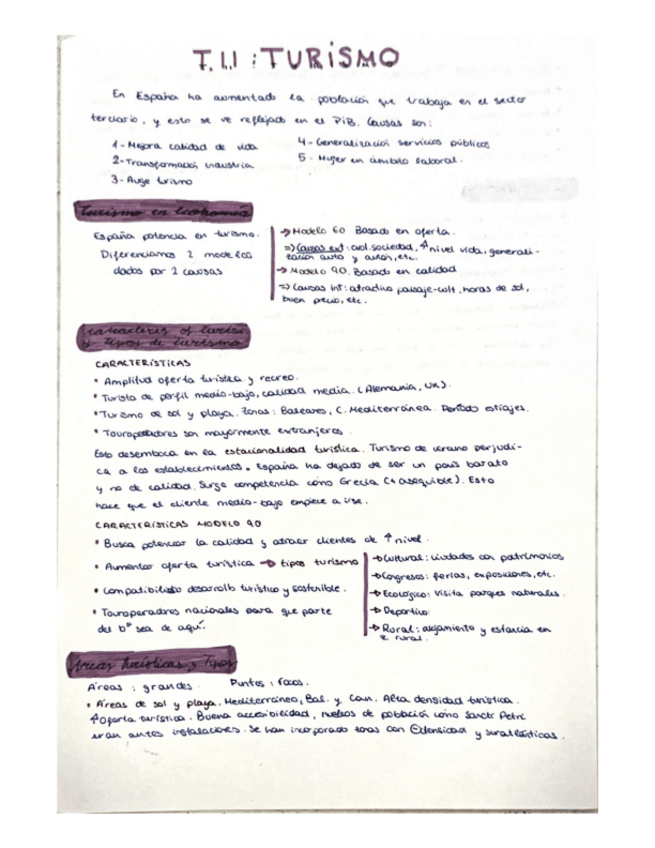 T.11 : TURISMO
En España ha aumentado la población que trabaja en el sector
terciario, y esto se ve reflejado en el PIB. Causas son:
1- Mejora calidad de vida
2- Transformación industria
3- Auge turismo
4- Generalización servicios públicos
5- Mujer en ámbito laboral.
Turismo en economía
España potencia en turismo.
Diferenciamos 2 modelos
dados por 2 causas
→ Modelo 60 Basado en oferta.
⇒ Causas ext: evol. sociedad, ↑ nivel vida, generali-
zación auto y avión, etc.
→ Modelo 90. Basado en calidad
⇒ Causas int: atractivo paisaje-cult, horas de sol,
buen precio, etc.
y tipos de turismo
CARACTERÍSTICAS
• Amplitud oferta turística y recreo.
• Turista de perfil medio-bajo, calidad media. (Alemania, UK).
• Turismo de sol y playa. Zonas: Baleares, C. Mediterránea. Período estiajes.
• Touroperadores son mayormente extranjeros.
Esto desemboca en la estacionalidad turística. Turismo de verano perjudi-
ca a los establecimientos. España ha dejado de ser un país barato
y no de calidad. Surge competencia como Grecia (+ asequible). Esto
hace que el cliente medio-bajo empiece a irse.
CARACTERÍSTICAS MODELO 90
• Busca potenciar la calidad y atraer clientes de ↑ nivel.
• Aumentar oferta turística → tipos turismo
• Compatibilidad desarrollo turístico y sostenible.
• Touroperadores nacionales para que parte
del bº sea de aquí.
→ Cultural: ciudades con patrimonios
→ Congresos: ferias, exposiciones, etc.
→ Ecológico: visita parques naturales.
→ Deportivo
→ Rural: alojamiento y estancia en
z rural.
Áreas turísticas y Tipos
Áreas : grandes. Puntos : focos.
• Áreas de sol y playa. Mediterráneo, Bal. y Can. Alta densidad turística.
↑ Oferta turística. Buena accesibilidad, núcleos de población como Sancti Petri
eran antes instalaciones. Se han incorporado zonas con densidad y